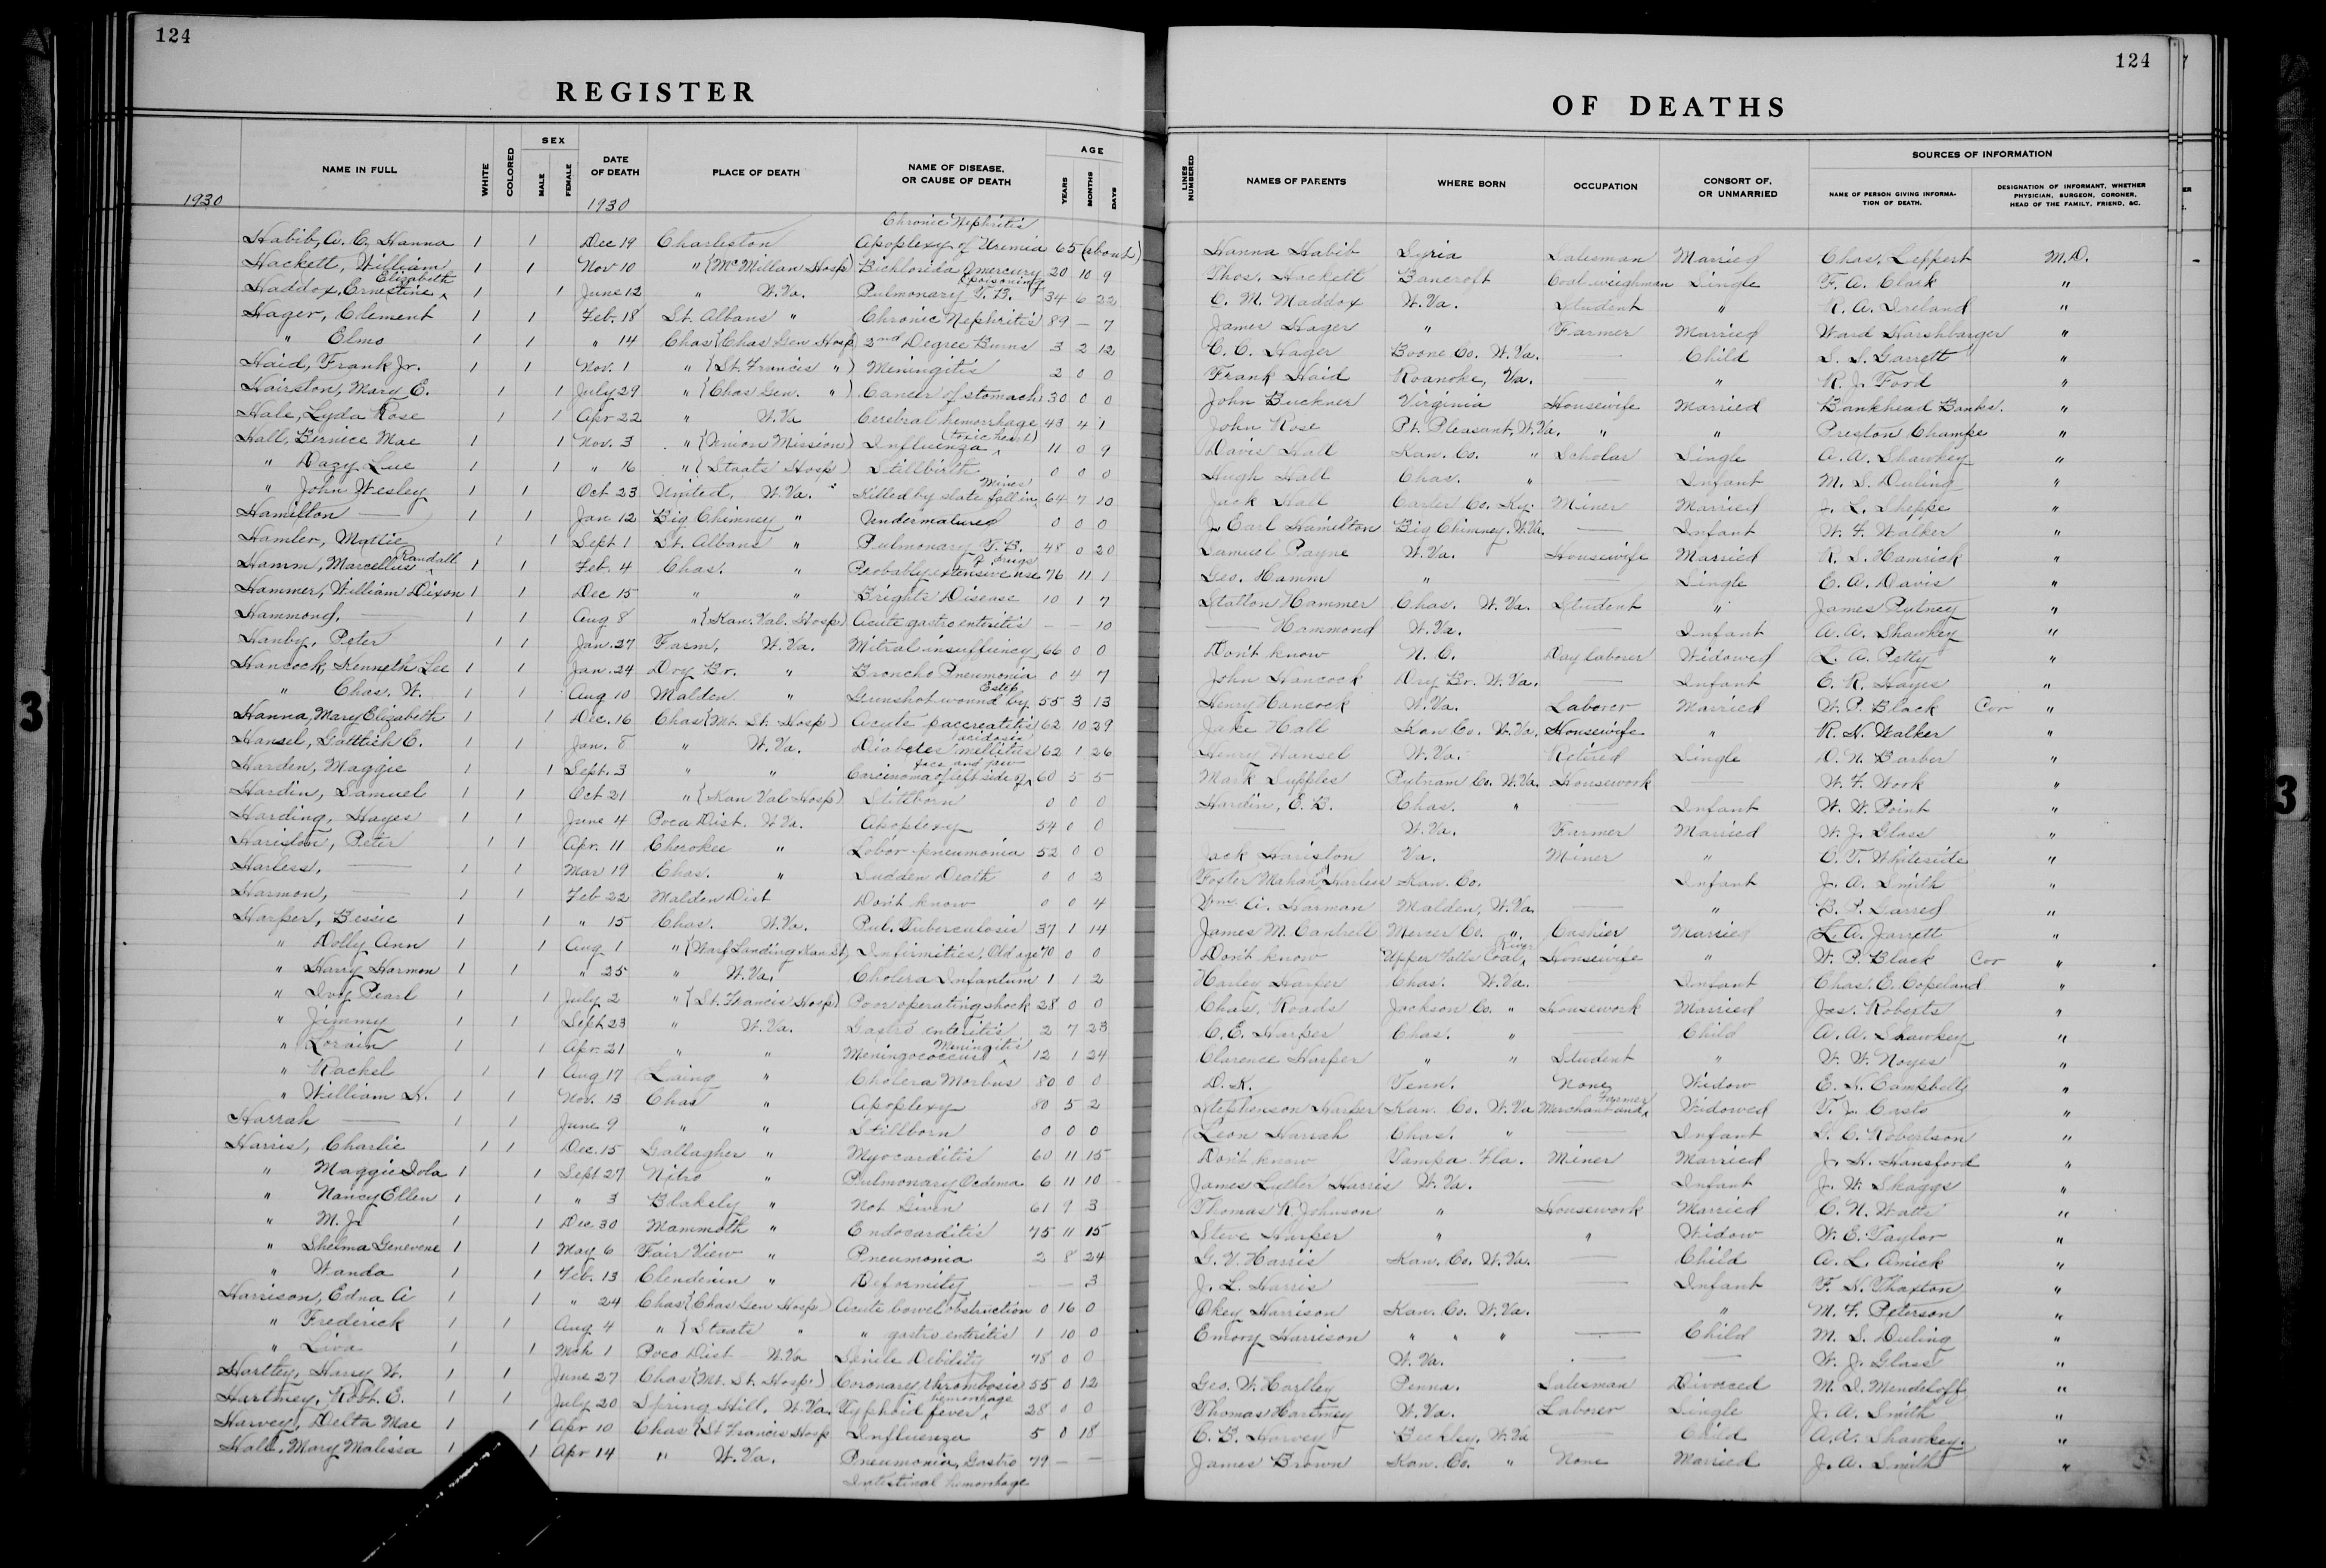 124
REGISTER
NAME IN FULL WHITE COLORED SEX MALE FEMALE DATE OF DEATH PLACE OF DEATH NAME OF DISEASE, OR CAUSE OF DEATH AGE YEARS MONTHS DAYS
1930 1930
Chronic Nephritis
Habib, A. C. Hanna 1 1 Dec 19 Charleston Apoplexy of Uremia 65 (about)
Hackett, William 1 1 Nov 10 " (McMillan Hosp) Bichlorida of mercury poisoning 20 10 9
Haddox, Ernestine Elizabeth 1 1 June 12 " W. Va. Pulmonary T. B. 34 6 22
Hager, Clement 1 1 Feb. 18 St. Albans " Chronic Nephritis 89 — 7
" Elmo 1 1 " 14 Chas (Chas Gen Hosp) 2nd Degree Burns 3 2 12
Haid, Frank Jr. 1 1 Nov. 1 " (St. Francis ") Meningitis 2 0 0
Hairston, Mary E. 1 1 July 29 " (Chas Gen. ") Cancer of stomach 30 0 0
Hale, Lyda Rose 1 1 Apr 22 " W. Va Cerebral hemorrhage 43 4 1
Hall, Bernice Mae 1 1 Nov. 3 " (Union Mission) Influenza (toxic heart) 11 0 9
" Dazy Lue 1 1 " 16 " (Staats Hosp) Stillbirth 0 0 0
" John Wesley 1 1 Oct 23 United, W. Va. Killed by slate fall in Mines 64 7 10
Hamilton — 1 1 Jan 12 Big Chimney " Undermatured 0 0 0
Hamler, Mattie 1 1 Sept 1 St. Albans " Pulmonary T. B. 48 0 20
Hamm, Marcellus Randall 1 1 Feb. 4 Chas. " Probably extensive use of drugs 76 11 1
Hammer, William Dixon 1 1 Dec 15 " " Brights Disease 10 1 7
Hammond, — 1 1 Aug 8 " (Kan. Val. Hosp) Acute gastro enteritis — — 10
Hanby, Peter 1 1 Jan. 27 Farm, W. Va. Mitral insuffiency 66 0 0
Hancock, Kenneth Lee 1 1 Jan. 24 Dry Br. " Broncho Pneumonia 0 4 7
" Chas. W. 1 1 Aug 10 Malden " Gunshot wound by Estep 55 3 13
Hanna, Mary Elizabeth 1 1 Dec. 16 Chas (Mt. St. Hosp) Acute paccreatitis 62 10 29
Hansel, Gottlieb E. 1 1 Jan. 8 " W. Va. Diabetes millitus (acidosis 62 1 26
Harden, Maggie 1 1 Sept. 3 " " Carcinoma of left side of face and jaw 60 5 5
Hardin, Samuel 1 1 Oct 21 " (Kan Val Hosp) Stillborn 0 0 0
Harding, Hayes 1 1 June 4 Poca Dist. W. Va. Apoplexy 54 0 0
Hariston, Peter 1 1 Apr. 11 Cherokee " Lobor pneumonia 52 0 0
Harless, — 1 1 Mar 19 Chas. " Sudden Death 0 0 2
Harmon, — 1 1 Feb 22 Malden Dist Don't know 0 0 4
Harper, Bessie 1 1 " 15 Chas. W. Va. Pul. Tuberculosis 37 1 14
" Dolly Ann 1 1 Aug 1 " (Warf Landing Kan St) Infirmities, Old age 70 0 0
" Harry Harmon 1 1 " 25 " W. Va. Cholera Infantum 1 1 2
" Ivy Pearl 1 1 July 2 " (St. Francis Hosp) Poor operating shock 28 0 0
" Jimmy 1 1 Sept 23 " W. Va. Gastro enteritis 2 7 23
" Lorain 1 1 Apr. 21 " " Meningococcus Meningitis 12 1 24
" Rachel 1 1 Aug 17 Laing " Cholera Morbus 80 0 0
" William H. 1 1 Nov. 13 Chas " Apoplexy 80 5 2
Harrah — 1 1 June 9 " " Stillborn 0 0 0
Harris, Charlie 1 1 Dec. 15 Gallagher " Myocarditis 60 11 15
" Maggie Iola 1 1 Sept 27 Nitro " Pulmonary Oedema 6 11 10
" Nancy Ellen 1 1 " 3 Blakely " Not Given 61 9 3
" M. J. 1 1 Dec 30 Mammoth " Endocarditis 75 11 15
" Shelma Genevene 1 1 May 6 Fair View " Pneumonia 2 8 24
" Wanda 1 1 Feb. 13 Clendenin " Deformity — — 3
Harrison, Edna A 1 1 " 24 Chas (Chas Gen Hosp) Acute bowel obstruction 0 16 0
" Frederick 1 1 Aug 4 " (Staats " " gastro enteritis 1 10 0
" Liva 1 1 Mch 1 Poco Dist W. Va Senile Debility 78 0 0
Hartley, Harry W. 1 1 June 27 Chas (Mt. St. Hosp) Coronary thrombosis 55 0 12
Hartney, Robt. E. 1 1 July 20 Spring Hill, W. Va. Typhoid fever hemorrhage 28 0 0
Harvey, Delta Mae 1 1 Apr 10 Chas (St Francis Hosp Influenza 5 0 18
Hall, Mary Malissa 1 1 Apr 14 " W. Va. Pneumonia, Gastro 79 — —
Intestinal hemorrhage
124
OF DEATHS
LINES NUMBERED NAMES OF PARENTS WHERE BORN OCCUPATION CONSORT OF, OR UNMARRIED SOURCES OF INFORMATION NAME OF PERSON GIVING INFORMATION OF DEATH. DESIGNATION OF INFORMANT, WHETHER PHYSICIAN, SURGEON, CORONER, HEAD OF THE FAMILY, FRIEND, &C.
Hanna Habib Syria Salesman Married Chas. Leppert M.D.
Thos. Hackett Bancroft Coal weighman Single F. A. Clark "
C. M. Maddox W. Va. Student " R. A. Ireland "
James Hager " Farmer Married Ward Harshbarger "
C. C. Hager Boone Co. W. Va. — Child S. S. Garrett "
Frank Haid Roanoke, Va. — " R. J. Ford "
John Buckner Virginia Housewife Married Bankhead Banks. "
John Rose Pt. Pleasant, W. Va. " " Preston Champe "
Davis Hall Kan. Co. " Scholar Single A. A. Shawkey "
Hugh Hall Chas. " — Infant M. S. Duling "
Jack Hall Carter Co. Ky. Miner Married J. L. Sheppe "
J. Earl Hamilton Big Chimney, W. Va. — Infant W. F. Walker "
Samuel Payne W. Va. Housewife Married R. S. Hamrick "
Geo. Hamm " — Single E. A. Davis "
Statton Hammer Chas. W. Va. Student " James Putney "
— Hammond W. Va. — Infant A. A. Shawkey "
Don't know N. C. Day laborer Widowed L. A. Petty "
John Hancock Dry Br. W. Va. — Infant E. R. Hayes "
Henry Hancock W. Va. Laborer Married W. P. Black Cor "
Jake Hall Kan Co. W. Va. Housewife " R. H. Walker "
Henry Hansel W. Va. Retired Single D. N. Barber "
Mark Supples Putnam Co. W. Va. Housework W. F. Work "
Hardin, E. B. Chas. " — Infant W. W. Point "
— W. Va. Farmer Married W. J. Glass "
Jack Hariston Va. Miner " C. T. Whiteside "
Foster Mahan Harless Kan. Co. Infant J. A. Smith "
Wm. A. Harman Malden, W. Va. — " B. P. Garred "
James M. Cantrell Mercer Co. " Cashier Married L. A. Jarrett "
Don't know Upper Falls Coal River Housewife " W. P. Black Cor "
Harley Harper Chas. W. Va. — Infant Chas. E. Copeland "
Chas. Roads Jackson Co. " Housework Married Jas. Roberts "
C. E. Harper Chas. " — Child A. A. Shawkey "
Clarence Harper " " Student " W. W. Noyes "
D. K. Tenn. None Widow E. H. Campbell "
Stephenson Harper Kan. Co. W. Va Merchant and Farmer Widowed T. J. Casto "
Leon Harrah Chas. " — Infant G. C. Robertson "
Don't know Tampa Fla. Miner Married J. H. Hansford "
James Luther Harris W. Va. — Infant J. W. Skaggs "
Thomas R. Johnson " Housework Married C. N. Watts "
Steve Harper " " Widow W. E. Taylor "
G. V. Harris Kan. Co. W. Va. — Child A. L. Amick "
J. L. Harris — — Infant F. H. Thaxton "
Okey Harrison Kan. Co. W. Va. " M. F. Peterson "
Emory Harrison " " " — Child M. S. Duling "
— W. Va. — — W. J. Glass "
Geo. W. Hartley Penna. Salesman Divorced M. I. Mendeloff "
Thomas Hartney W. Va. Laborer Single J. A. Smith "
C. B. Harvey Beckley, W. Va — Child A. A. Shawkey. "
James Brown Kan. Co. " None Married J. A. Smith "
3
3